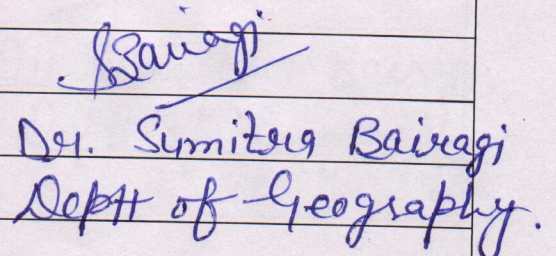 SBairagi
Dr. Sumitra Bairagi
Deptt of Geography.